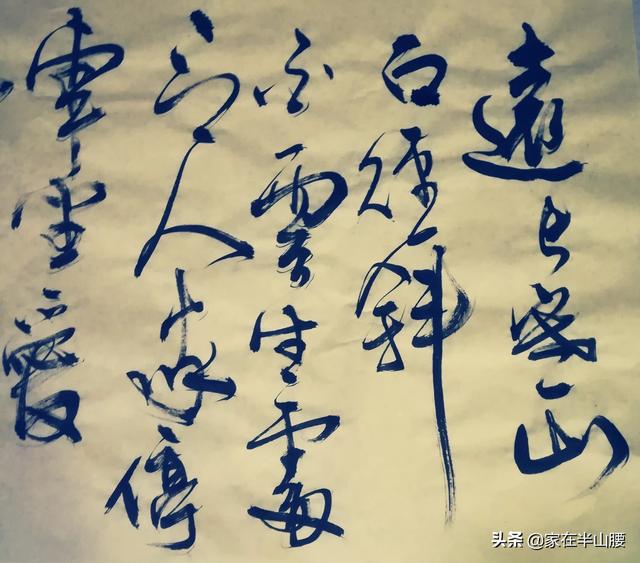 遠上寒山
石徑斜
白雲生處
有人家停
車坐愛
头条 @家在半山腰